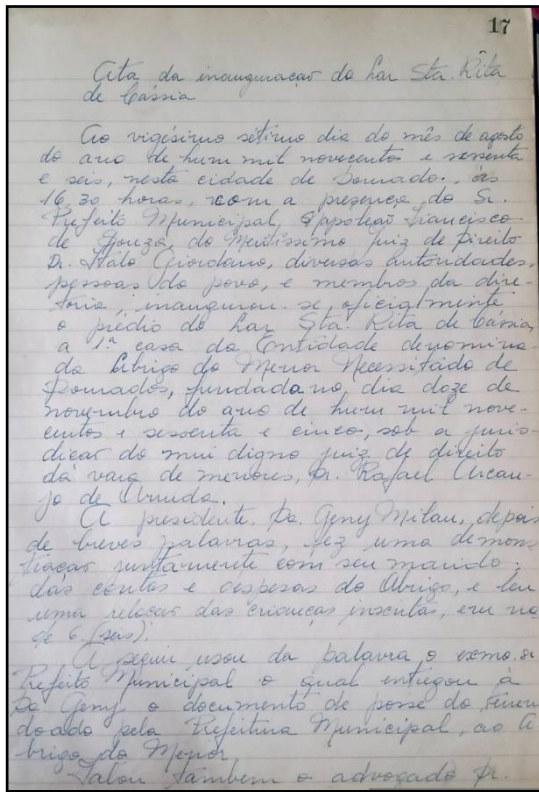 17
Ata da inauguração do Lar Sta. Rita
de Cássia
Ao vigésimo sétimo dia do mês de agosto
do ano de hum mil novecentos e sessenta
e seis, nesta cidade de Dourados, às
16,30 horas, com a presença do Sr.
Prefeito Municipal, Napoleão Francisco
de Souza, do Meritíssimo Juiz de Direito
Dr. Italo Giordano, diversas autoridades,
pessoas do povo, e membros da dire-
toria, inaugurou-se, oficialmente
o prédio do Lar Sta. Rita de Cássia,
a 1ª casa da Entidade denomina-
da Abrigo do Menor Necessitado de
Dourados, fundada no dia doze de
novembro do ano de hum mil nove-
centos e sessenta e cinco, sob a juris-
dicar do mui digno juiz de direito
da vara de menores, Dr. Rafael Arcan-
jo de Arruda.
A presidente Da. Geny Milan, depois
de breves palavras, fez uma demons
tração juntamente com seu marido
das contas e despesas do Abrigo, e leu
uma relação das crianças inscritas, em no
de 6 (seis).
A seguir usou da palavra o exmo. sr
Prefeito Municipal o qual entregou à
Da Geny o documento de posse do terreno
doado pela Prefeitura Municipal, ao A
brigo do Menor
Falou também o advogado Dr.